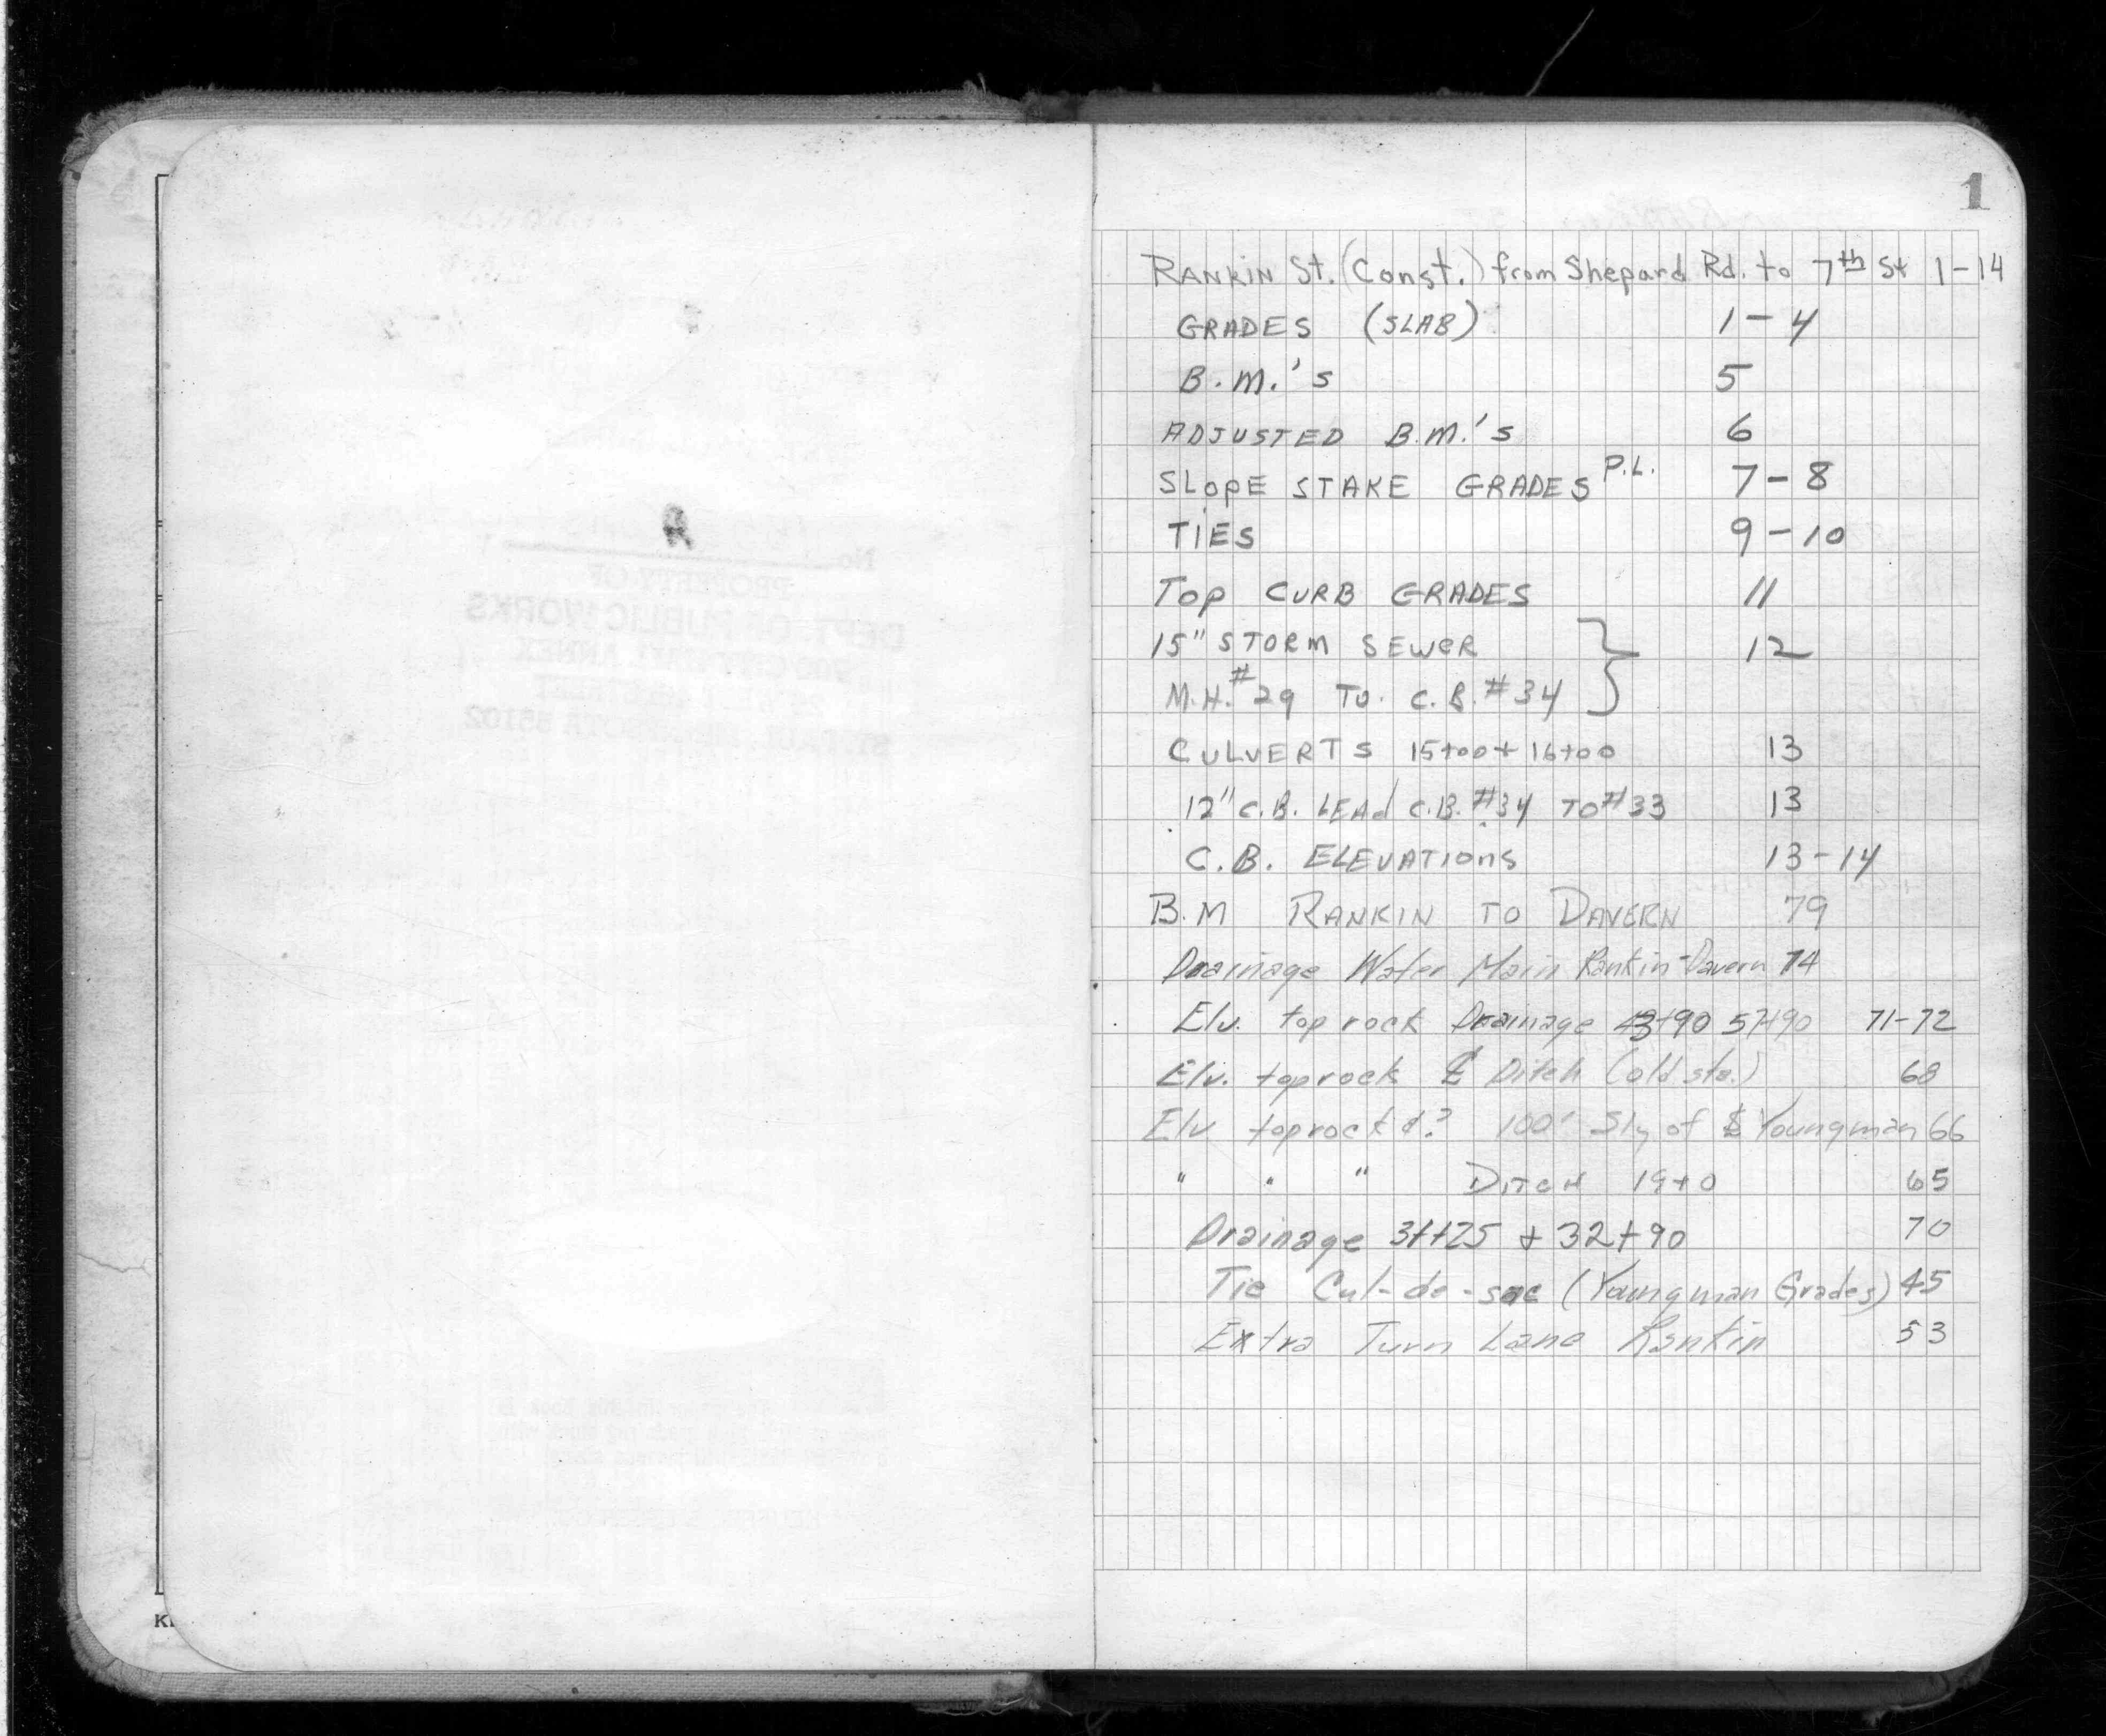 1
RANKIN St. (Const.) from Shepard Rd. to 7th St 1-14
GRADES (SLAB) 1-4
B.M.'s 5
ADJUSTED B.M.'s 6
SLOPE STAKE GRADES P.L. 7-8
TIES 9-10
TOP CURB GRADES 11
15" STORM SEWER 12
M.H. #29 TO C.B. #34
CULVERTS 15+00 + 16+00 13
12" C.B. LEAD C.B. #34 TO #33 13
C.B. ELEVATIONS 13-14
B.M RANKIN TO DAVERN 79
Drainage Water Main Rankin-Davern 74
Elv. top rock Drainage 43+90 57+90 71-72
Elv. top rock ℄ Ditch (old sta.) 68
Elv top rock ¢? 100' Sly of ℄ Youngman 66
" " " DITCH 19+0 65
Drainage 31+25 + 32+90 70
Tie Cul-de-sac (Youngman Grades) 45
Extra Turn Lane Rankin 53
No.
PROPERTY OF
DEPT. OF PUBLIC WORKS
ST. PAUL, MINNESOTA 55102